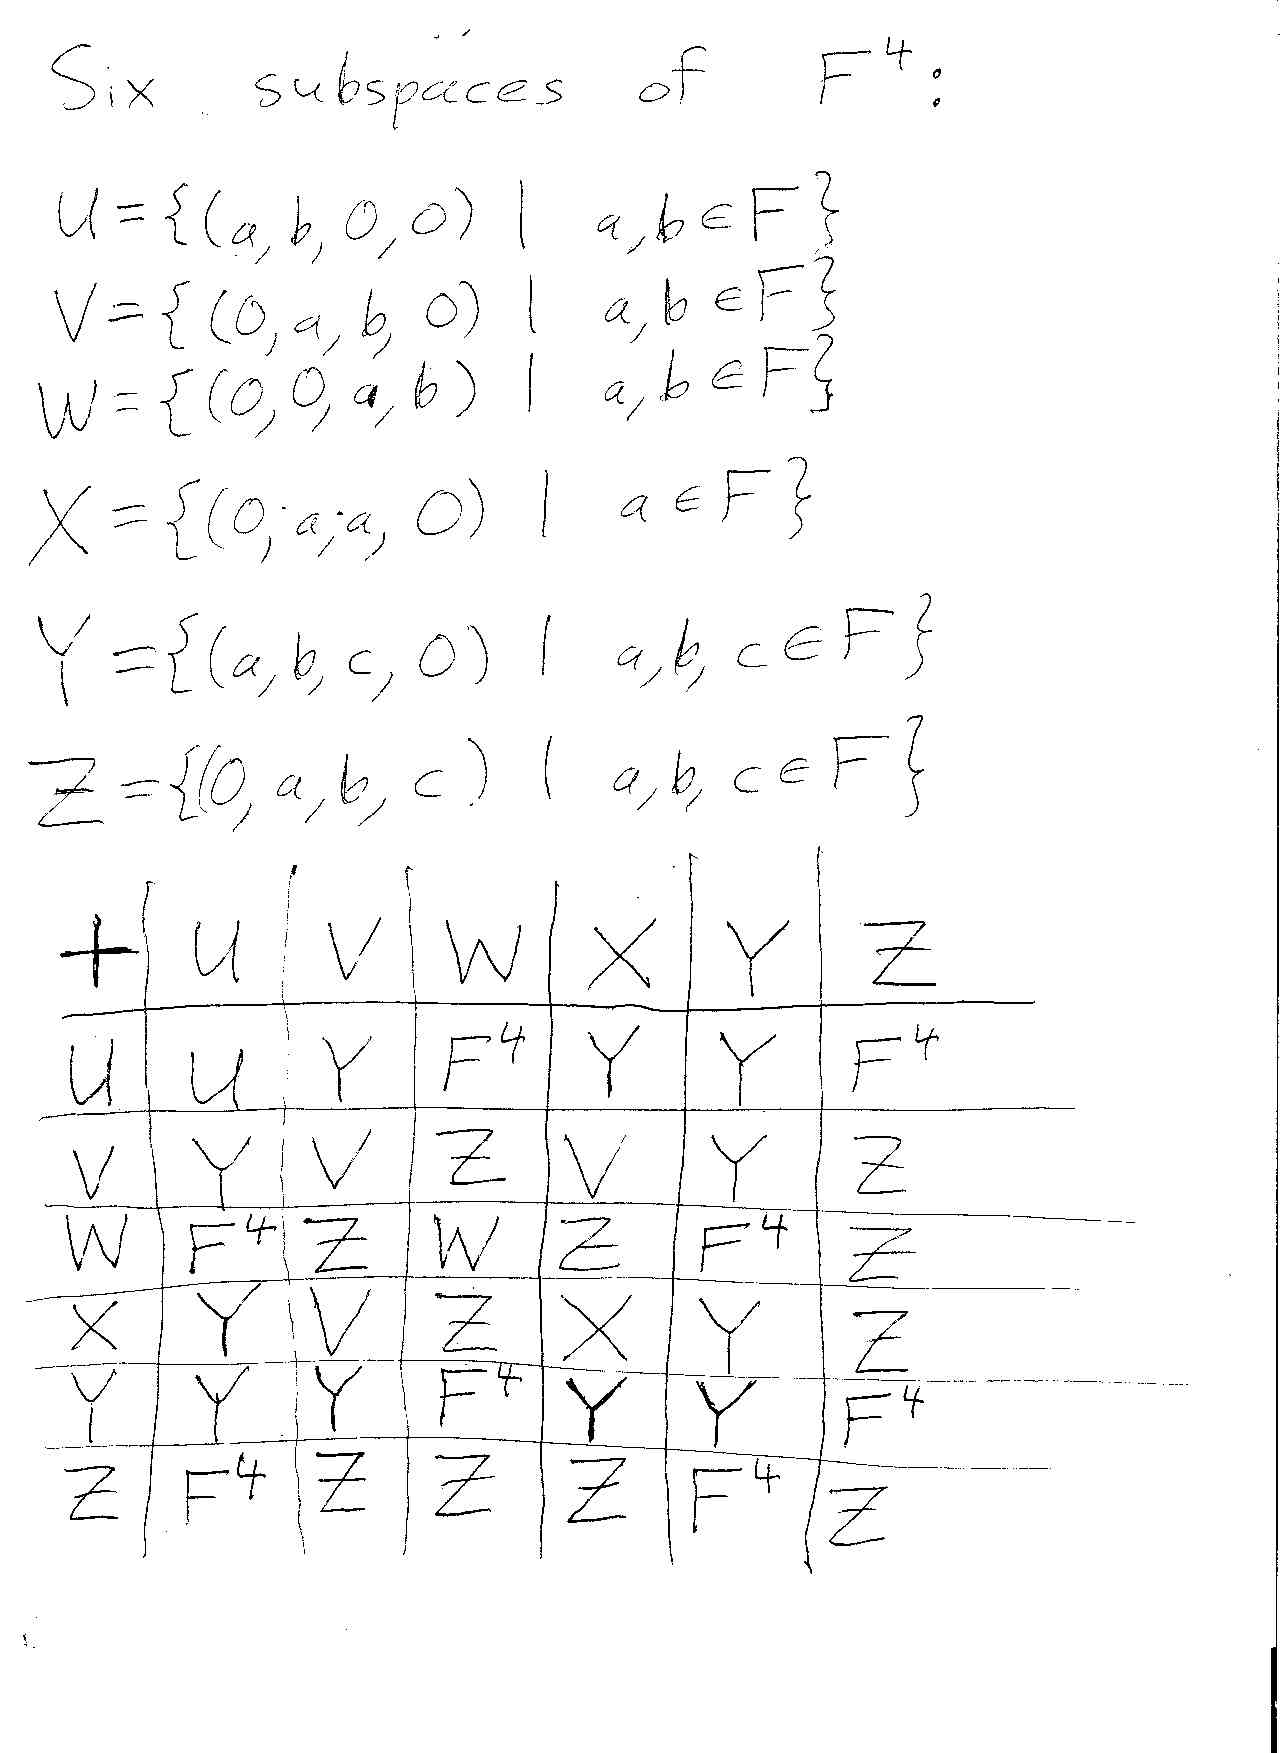 Six subspaces of F⁴:
U={(a,b,0,0) | a,b∈F}
V={(0,a,b,0) | a,b∈F}
W={(0,0,a,b) | a,b∈F}
X={(0,a,a,0) | a∈F}
Y={(a,b,c,0) | a,b,c∈F}
Z={(0,a,b,c) | a,b,c∈F}
+ U V W X Y Z
U U Y F⁴ Y Y F⁴
V Y V Z V Y Z
W F⁴ Z W Z F⁴ Z
X Y V Z X Y Z
Y Y Y F⁴ Y Y F⁴
Z F⁴ Z Z Z F⁴ Z